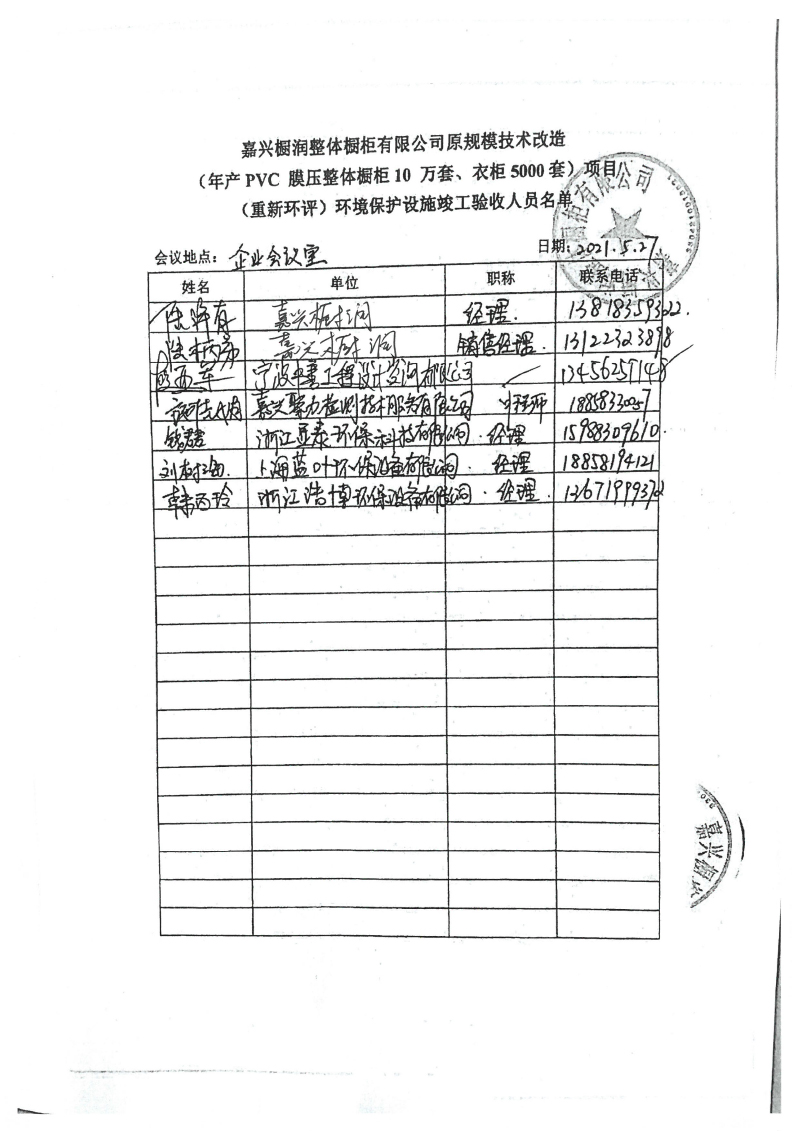 嘉兴橱润整体橱柜有限公司原规模技术改造
（年产 PVC 膜压整体橱柜 10 万套、衣柜 5000 套）项目
（重新环评）环境保护设施竣工验收人员名单
会议地点：企业会议室 日期：2021.5.27
姓名 单位 职称 联系电话
嘉兴橱润 经理. 13818359322.
嘉兴橱润 销售经理. 13122323898
宁波 工程设计咨询有限公司 13456257148
嘉兴聚力检测技术服务有限公司 工程师 18858330257
浙江亚泰环保科技有限公司 经理 15988309610.
上海蓝叶环保设备有限公司 经理 18858194121
韩丙玲 浙江浩博环保设备有限公司. 经理. 13671999372
嘉兴橱